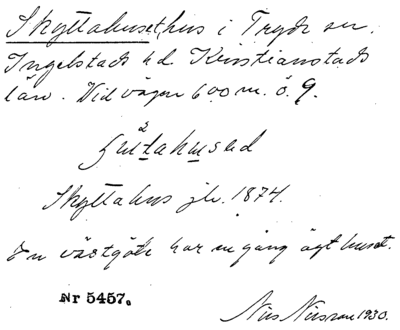 Skyttahusethus i Tryde sn.
Ingelstads hd. Kristianstads
län. Vid vägen 600 m. ö. 9.
Skyttahus jb. 1874.
En västgöte har en gång ägt huset.
Nr 5457.
Nils Nilsson 1930.